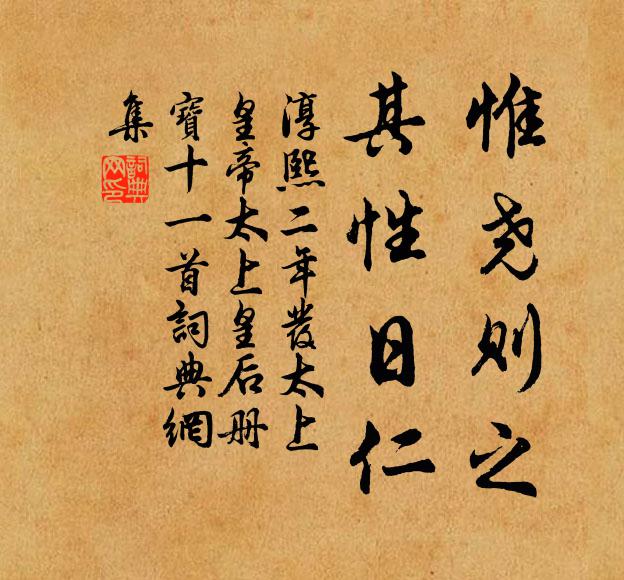 惟尧则之
其性日仁
淳熙二年發太上
皇帝太上皇后册
寶十一首詞典網
集
詞典网印